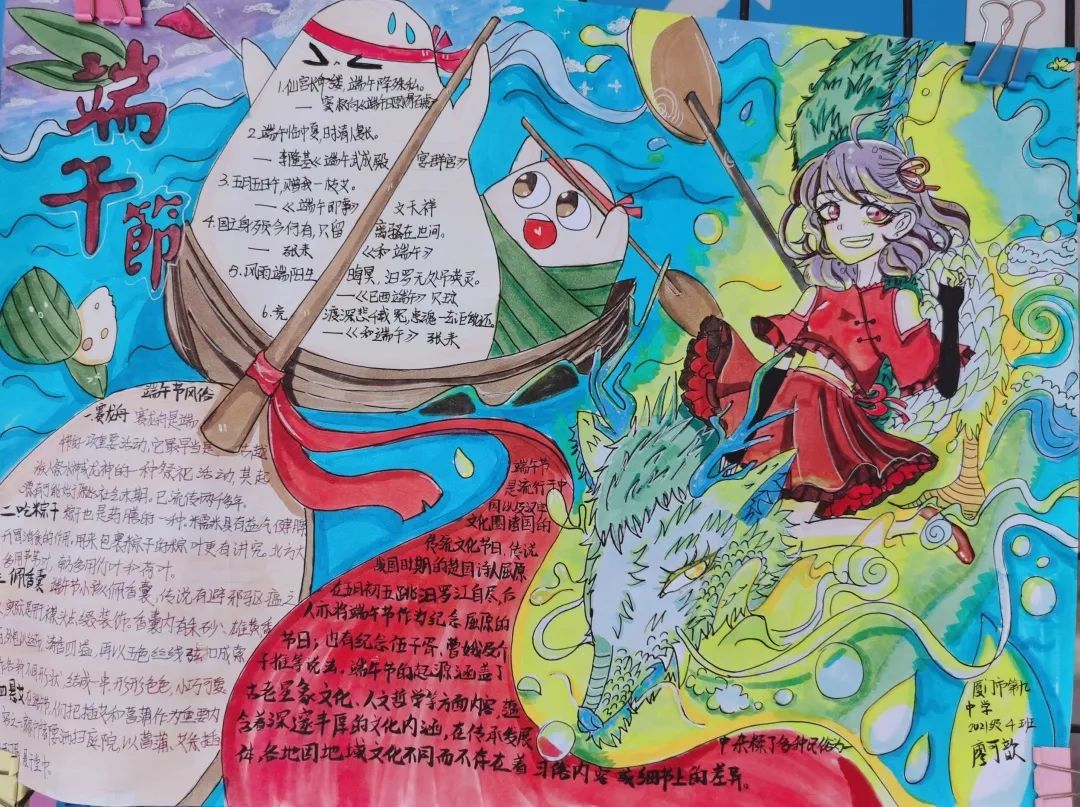 端午節
1.仙宫长命缕,端午降殊私。
2.端午临中夏,时清人复长。
— 李隆基《端午武成殿 宫群官》
3.五月五日午,赠我一枝艾。
— 《端午即事》 文天祥
4.国亡身殒今何有,只留 离骚在世间。
张耒 《和端午》
5.风雨端阳生 晦冥,汨罗无处吊英灵。
—《已酉端午》贝琼
6.竞 渡深悲千载冤,忠魂一去讵能还。
—《和端午》 张耒
端午节风俗
一.赛龙舟 赛龙舟是端
一项重要活动,它最早当是 古越
族人祭水神或龙神的一种祭祀活动,其起
源有可能始于原始社会末期.已流传两千多年。
二吃粽子 粽也是药膳的一种.糯米具有益气,健脾
开胃消食的作用.用来包裹粽子的粽叶更有讲究.北方大
多用苇叶,南方多用竹叶和荷叶。
三.佩香囊 端节小孩佩香囊,传说有避邪驱瘟之
香囊内有朱砂、雄黄香
清香四溢,再以五色丝线弦扣成索
不同形状,结成一串,形形色色,小巧可爱。
四悬艾 在端午节,人们把插艾和菖蒲作为重要内
容之一.家家都洒扫庭院,以菖蒲、艾条插
端午节
是流行于中
国以及汉字
文化圈诸国的
传统文化节日,传说
战国时期的楚国诗人屈原
在五月初五跳汨罗江自尽,后
人亦将端午节作为纪念屈原的
节日;也有纪念伍子胥,曹娥及介
子推等说法.端午节的起源涵盖了
古老星象文化、人文哲学等方面内容,蕴
含着深邃丰厚的文化内涵,在传承发展
中杂糅了多种民俗为一
体,各地因地域文化不同而不存在着习俗内容或细节上的差异。
厦门市第九
中学
2021级4班
廖可歆